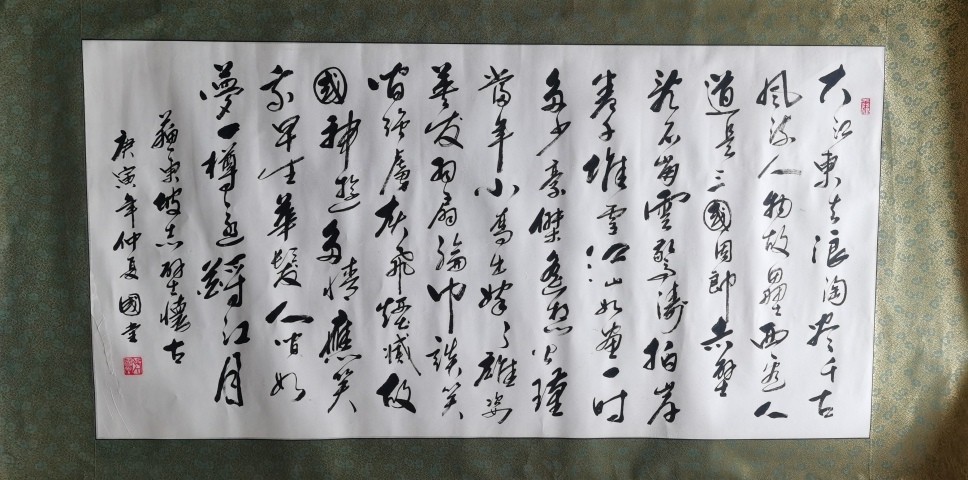 大江東去浪淘尽千古
風流人物故壘西邊人
道是三國周郎赤壁
乱石崩雲驚濤拍岸
卷千堆雪江山如畫一时
多少豪傑遙想公瑾
當年小喬出嫁了雄姿
英发羽扇綸巾談笑
间強虜灰飛煙滅故
國神遊多情應笑
我早生華髮人间如
夢一樽還酹江月
蘇東坡赤壁懷古
庚寅年仲夏國